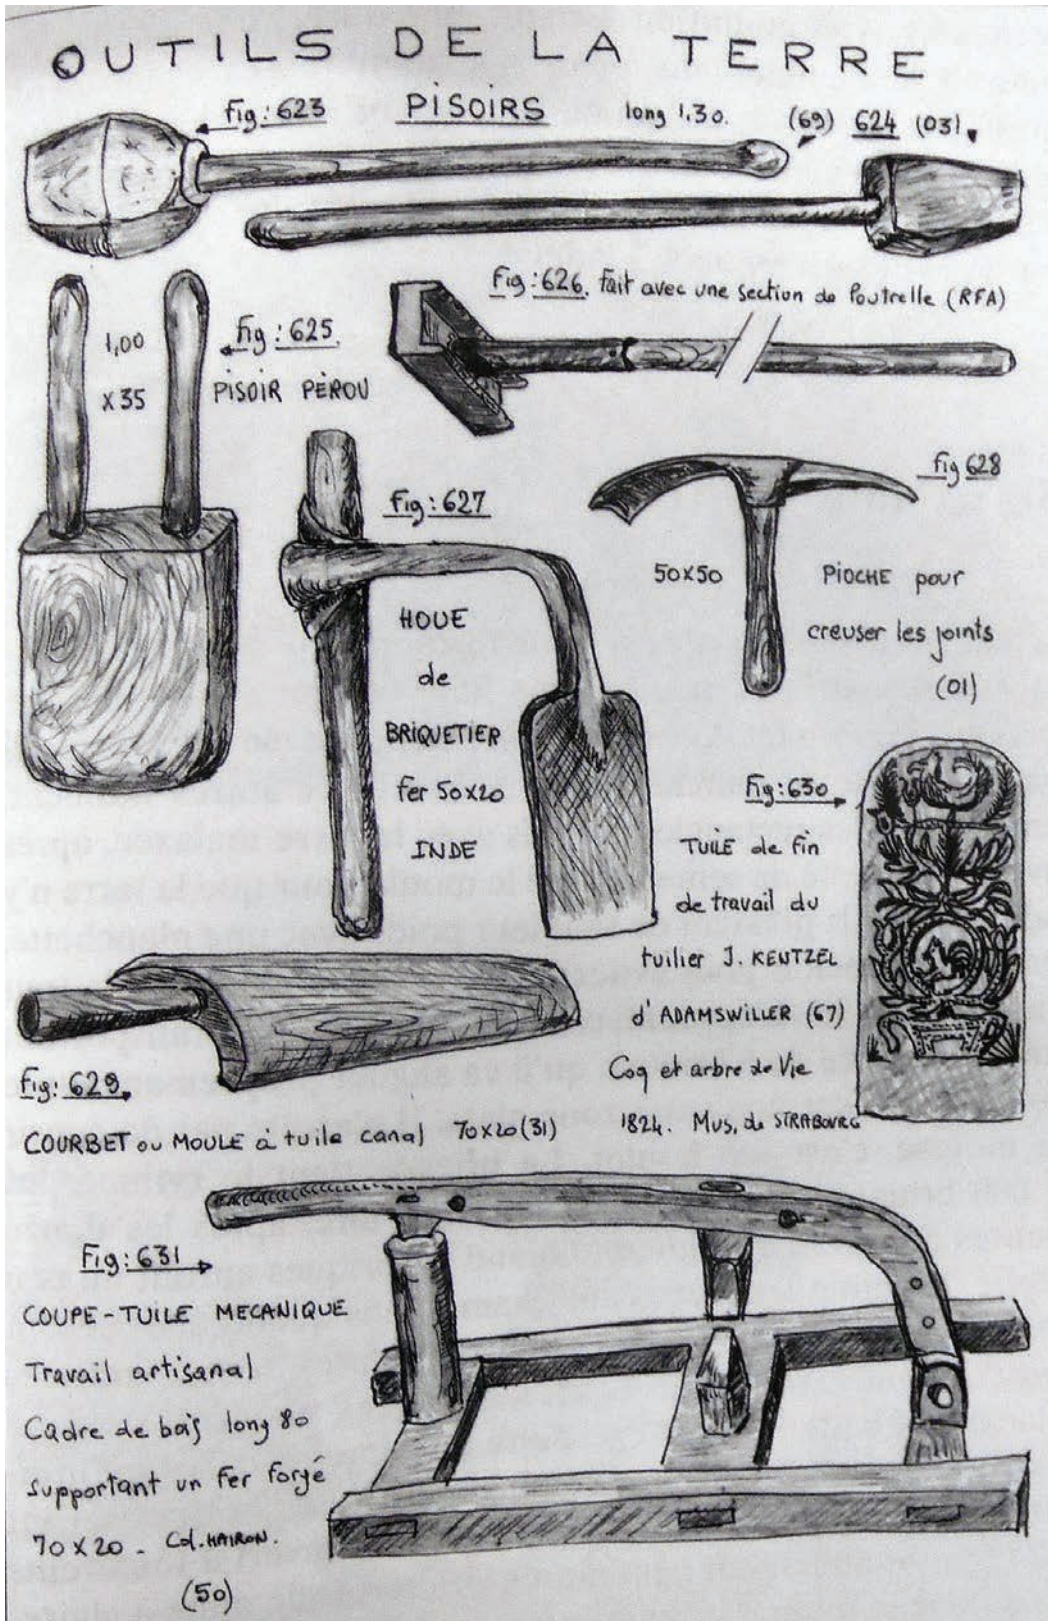 OUTILS DE LA TERRE
Fig: 623 PISOIRS long 1,30. (69) 624 (03)
Fig: 626. Fait avec une section de Poutrelle (RFA)
1,00
X 35
Fig: 625.
PISOIR PÈROU
Fig: 627
HOUE
de
BRIQUETIER
fer 50x20
INDE
Fig 628
50x50
PIOCHE pour
creuser les joints
(01)
Fig: 629.
COURBET ou MOULE à tuile canal 70x20 (31)
Fig: 630
TUILE de fin
de travail du
tuilier J. KENTZEL
d'ADAMSWILLER (67)
Coq et arbre de Vie
1824. Mus. de STRABOURG
Fig: 631
COUPE-TUILE MECANIQUE
Travail artisanal
Cadre de bois long 80
supportant un fer forgé
70 x 20 - Col. HAIRON.
(50)